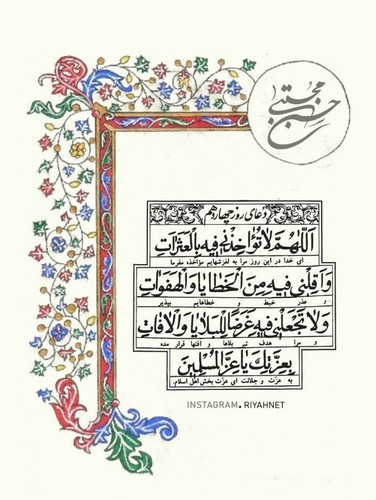 حسن مجتبی
دعای روز چهاردهم
اَللّهُمَّ لاتُؤاخِذْنی فیهِ بِالْعَثَراتِ
ای خدا در این روز مرا به لغزشهایم مؤاخذه مفرما
وَاَقِلْنی فیهِ مِنَ الْخَطایا وَالْهَفَواتِ
و عذر خبط و خطاهایم بپذیر
وَلا تَجْعَلْنی فیهِ غَرَضًا لِلْبَلایا وَالْافاتِ
و مرا هدف تیر بلاها و آفتها قرار مده
بِعِزَّتِكَ یا عِزَّ الْمُسْلِمینَ
به عزت و جلالت ای عزت بخش اهل اسلام.
INSTAGRAM. RIYAHNET